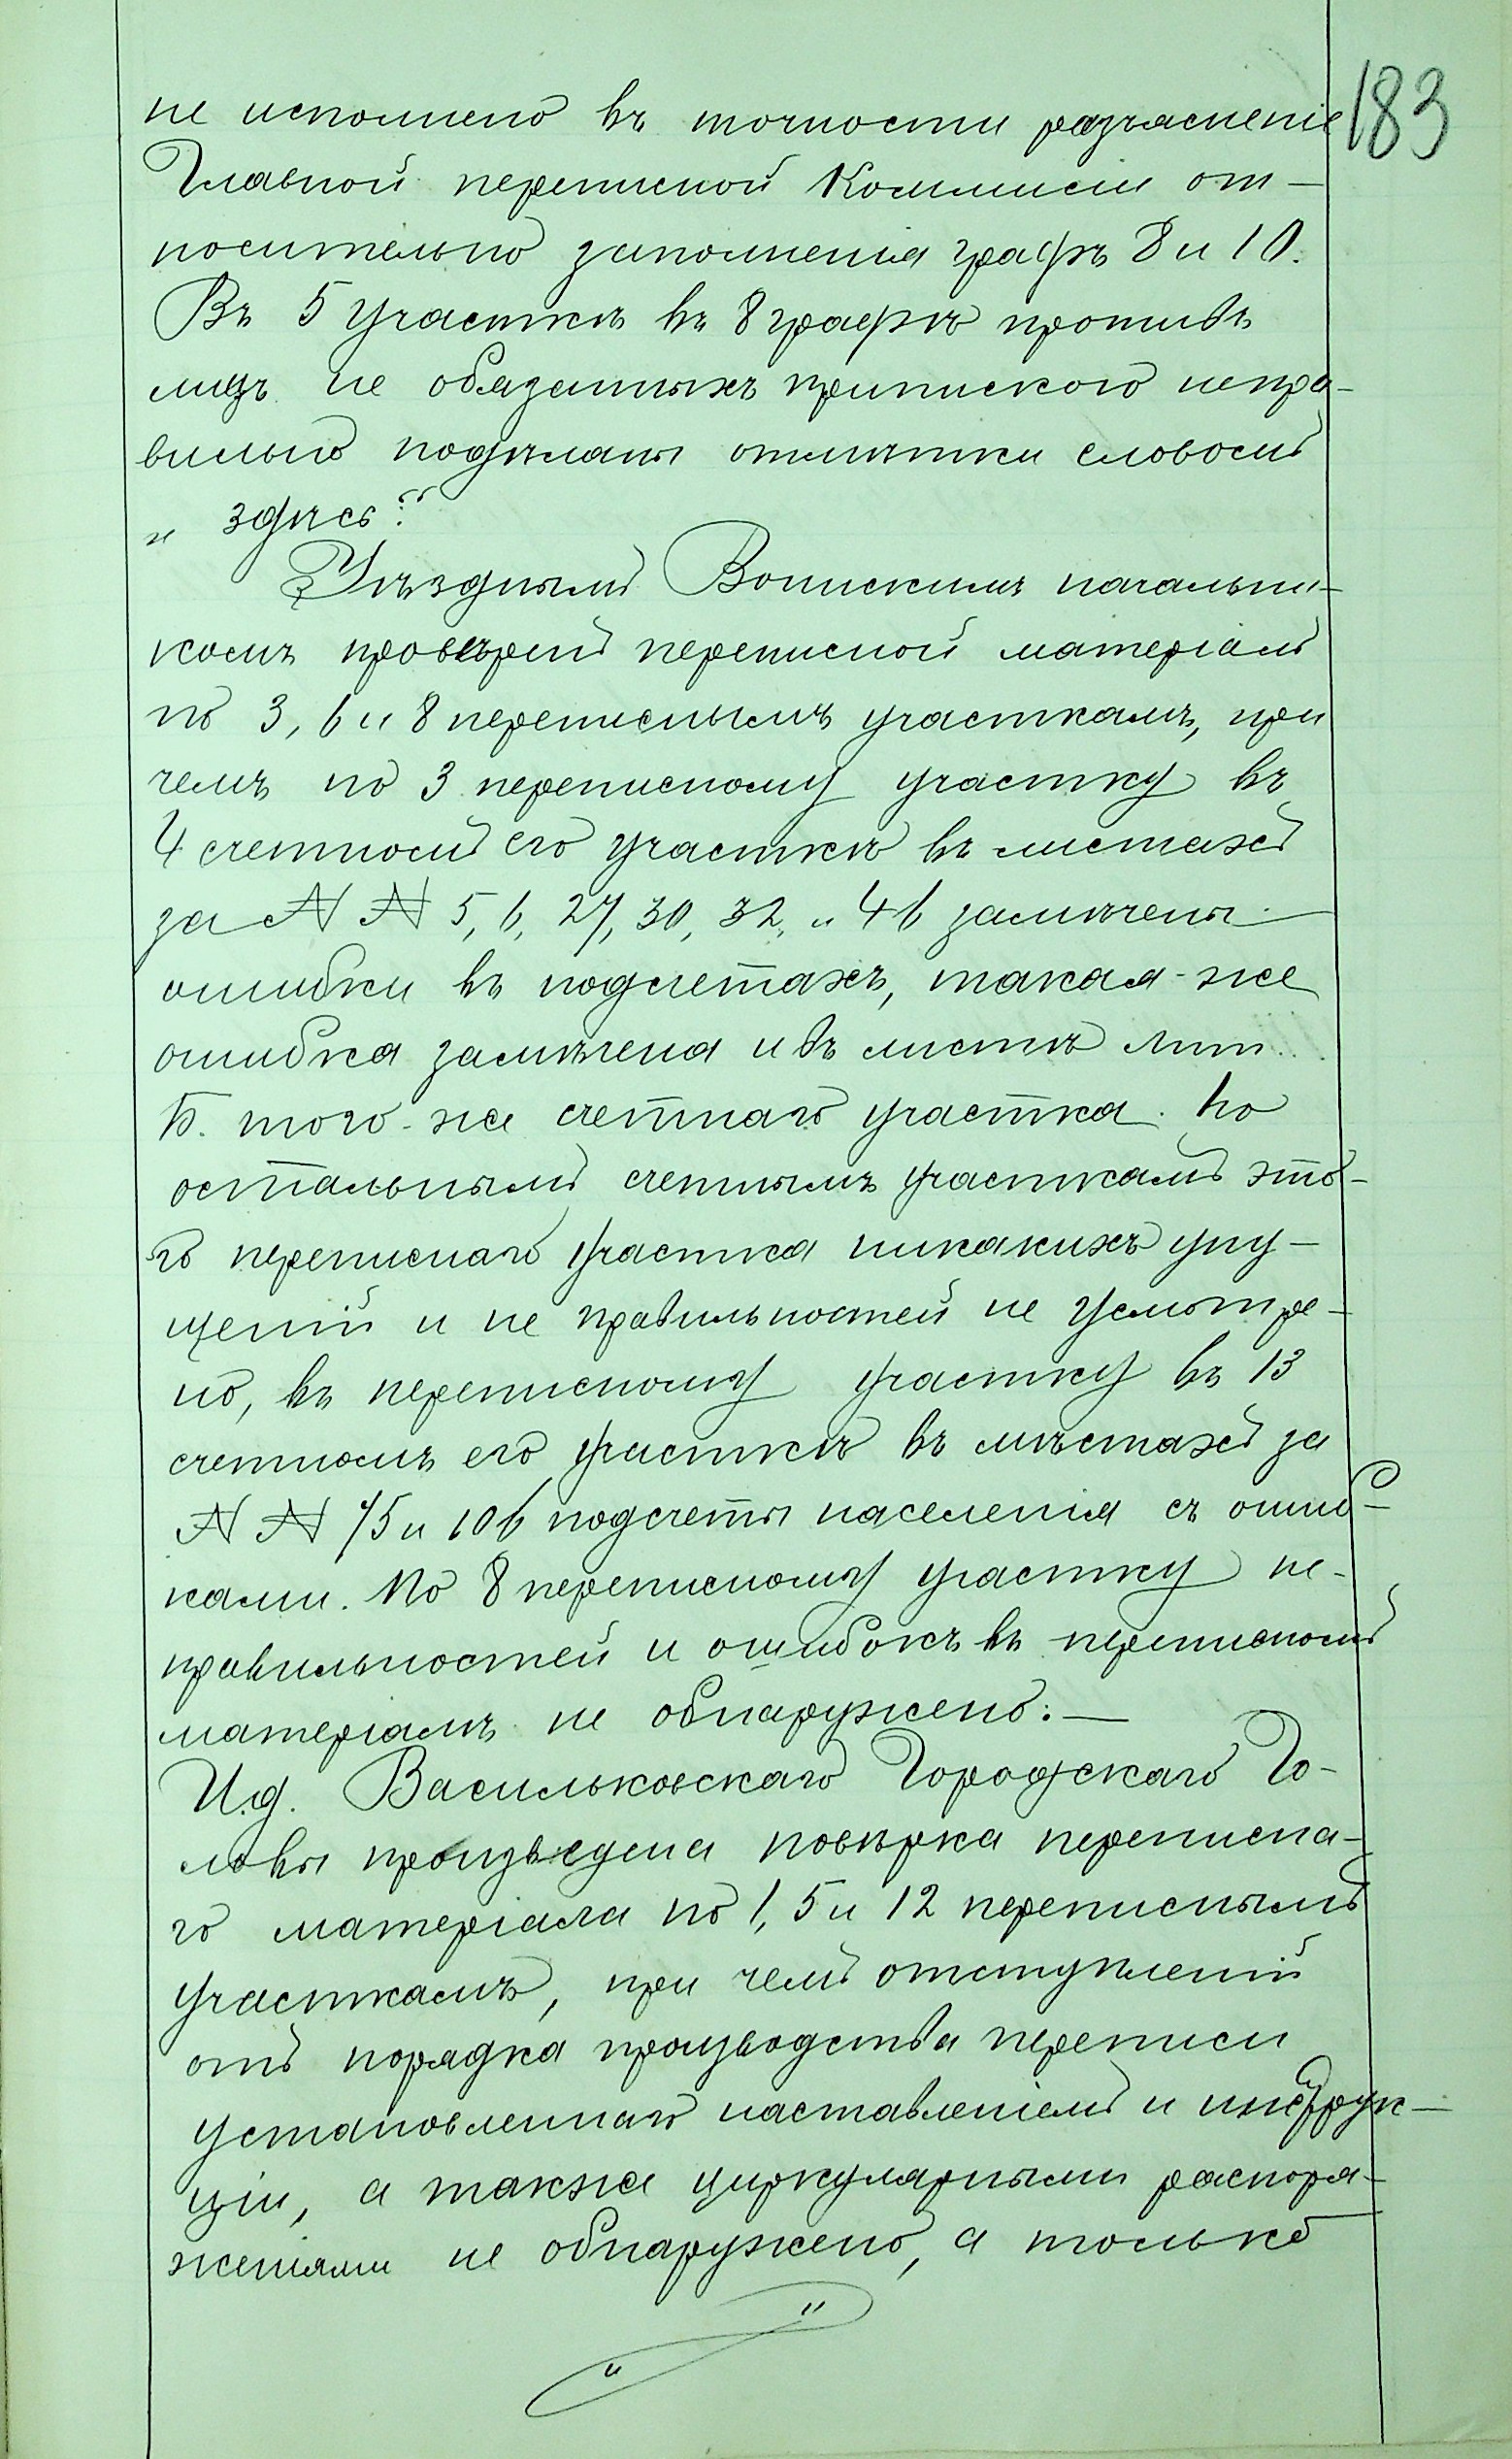 183
не исполнено въ точности разъясненіе
Главной переписной Коммисіи от-
носительно заполненія графъ 8 и 10.
Въ 5 участкѣ въ 8 графѣ противъ
лицъ не обязанныхъ припискою непра-
вильно подѣланы отмѣтки словомъ
„здѣсь“.
Уѣзднымъ Воинскимъ начальни-
комъ провѣренъ переписной матеріалъ
по 3, 6 и 8 переписнымъ участкамъ, при
чемъ по 3 переписному участку въ
4 счетномъ его участкѣ въ листахъ
за №№ 5, 6, 27, 30, 32, и 46 замѣчены
ошибки въ подсчетахъ, такая-же
ошибка замѣчена и въ листѣ лит.
Б. того-же счетнаго участка. По
остальнымъ счетнымъ участкамъ это-
го переписнаго участка никакихъ упу-
щеній и не правильностей не усмотре-
но, въ переписному участку въ 13
счетномъ его участкѣ въ мѣстахъ за
№№ 75 и 106 подсчеты населенія съ ошиб-
ками. По 8 переписному участку не-
правильностей и ошибокъ въ переписномъ
матеріалѣ не обнаружено.—
И.д. Васильковскаго Городскаго Го-
ловы произведена повѣрка переписна-
го матеріала по 1, 5 и 12 переписнымъ
участкамъ, при чемъ отступленій
отъ порядка производства переписи
установленнаго наставленіемъ и инструк-
ціи, а также циркулярными распоря-
женіями не обнаружено, а только